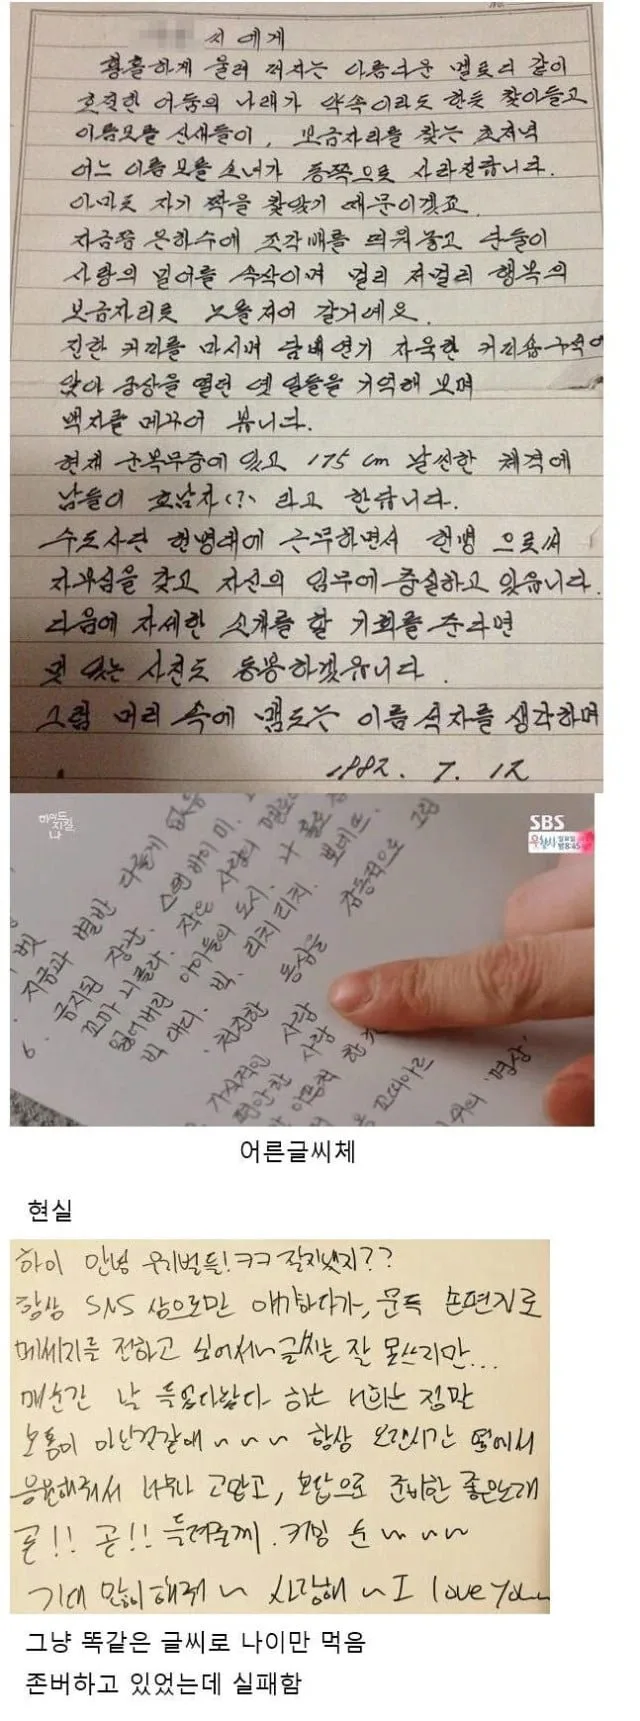 씨 에게
황홀하게 울려 퍼지는 아름다운 멜로디 같이
호젓한 어둠의 나래가 약속이라도 한듯 찾아들고
이름모를 산새들이, 보금자리를 찾는 초저녁
어느 이름 모를 소녀가 동쪽으로 사라진답니다.
아마도 자기 짝을 찾았기 때문이겠죠.
지금쯤 은하수에 조각배를 띄워놓고 단둘이
사랑의 밀어를 속삭이며 멀리 저멀리 행복의
보금자리로 노를저어 갈거예요.
진한 커피를 마시며 담배연기 자욱한 커피숍구석에
앉아 공상을 떨던 옛 일들을 기억해 보며
백지를 메꾸어 봅니다.
현재 군복무중에 있고 175cm 날씬한 체격에
남들이 호남자(?) 라고 한답니다.
수도사단 헌병대에 근무하면서 헌병 으로써
자부심을 갖고 자신의 임무에 충실하고 있읍니다.
다음에 자세한 소개를 할 기회를 준다면
멋 있는 사진도 동봉하겠읍니다.
그럼 머리 속에 맴도는 이름 석자를 생각하며
1982. 7. 12
하이드 지킬, 나
SBS
벳
지금과 별반 다를게 없음
6. 금지된 장난. 스탠바이미.
꼬마 니콜라. 작은 사랑의 멜로디
잃어버린 아이들의 도시. 나 홀로
빅 대디. 빅. 리치리치. 뽀네뜨.
천진한 동심을 감동적으로 그린
가식적인 사랑
편안한 사랑
꼬띠아르
위의 '명상'
어른글씨체
현실
하이 안녕 우리벌들!ㅋㅋ 잘지냈지??
항상 SNS 상으로만 얘기하다가, 문득 손편지로
메세지를 전하고 싶어서~ 글씨는 잘 못쓰지만...
매순간 날 들었다놨다 하는 너희는 정말
보통이 아닌것같애 ~ ~ ~ 항상 오랜시간 옆에서
응원해줘서 너무나 고맙고, 보답으로 준비한 좋은노래
곧!! 곧!! 들려줄께. 커밍 순 ~ ~ ~
기대 많이해줘 ~ 사랑해 ~ I love you~
그냥 똑같은 글씨로 나이만 먹음
존버하고 있었는데 실패함